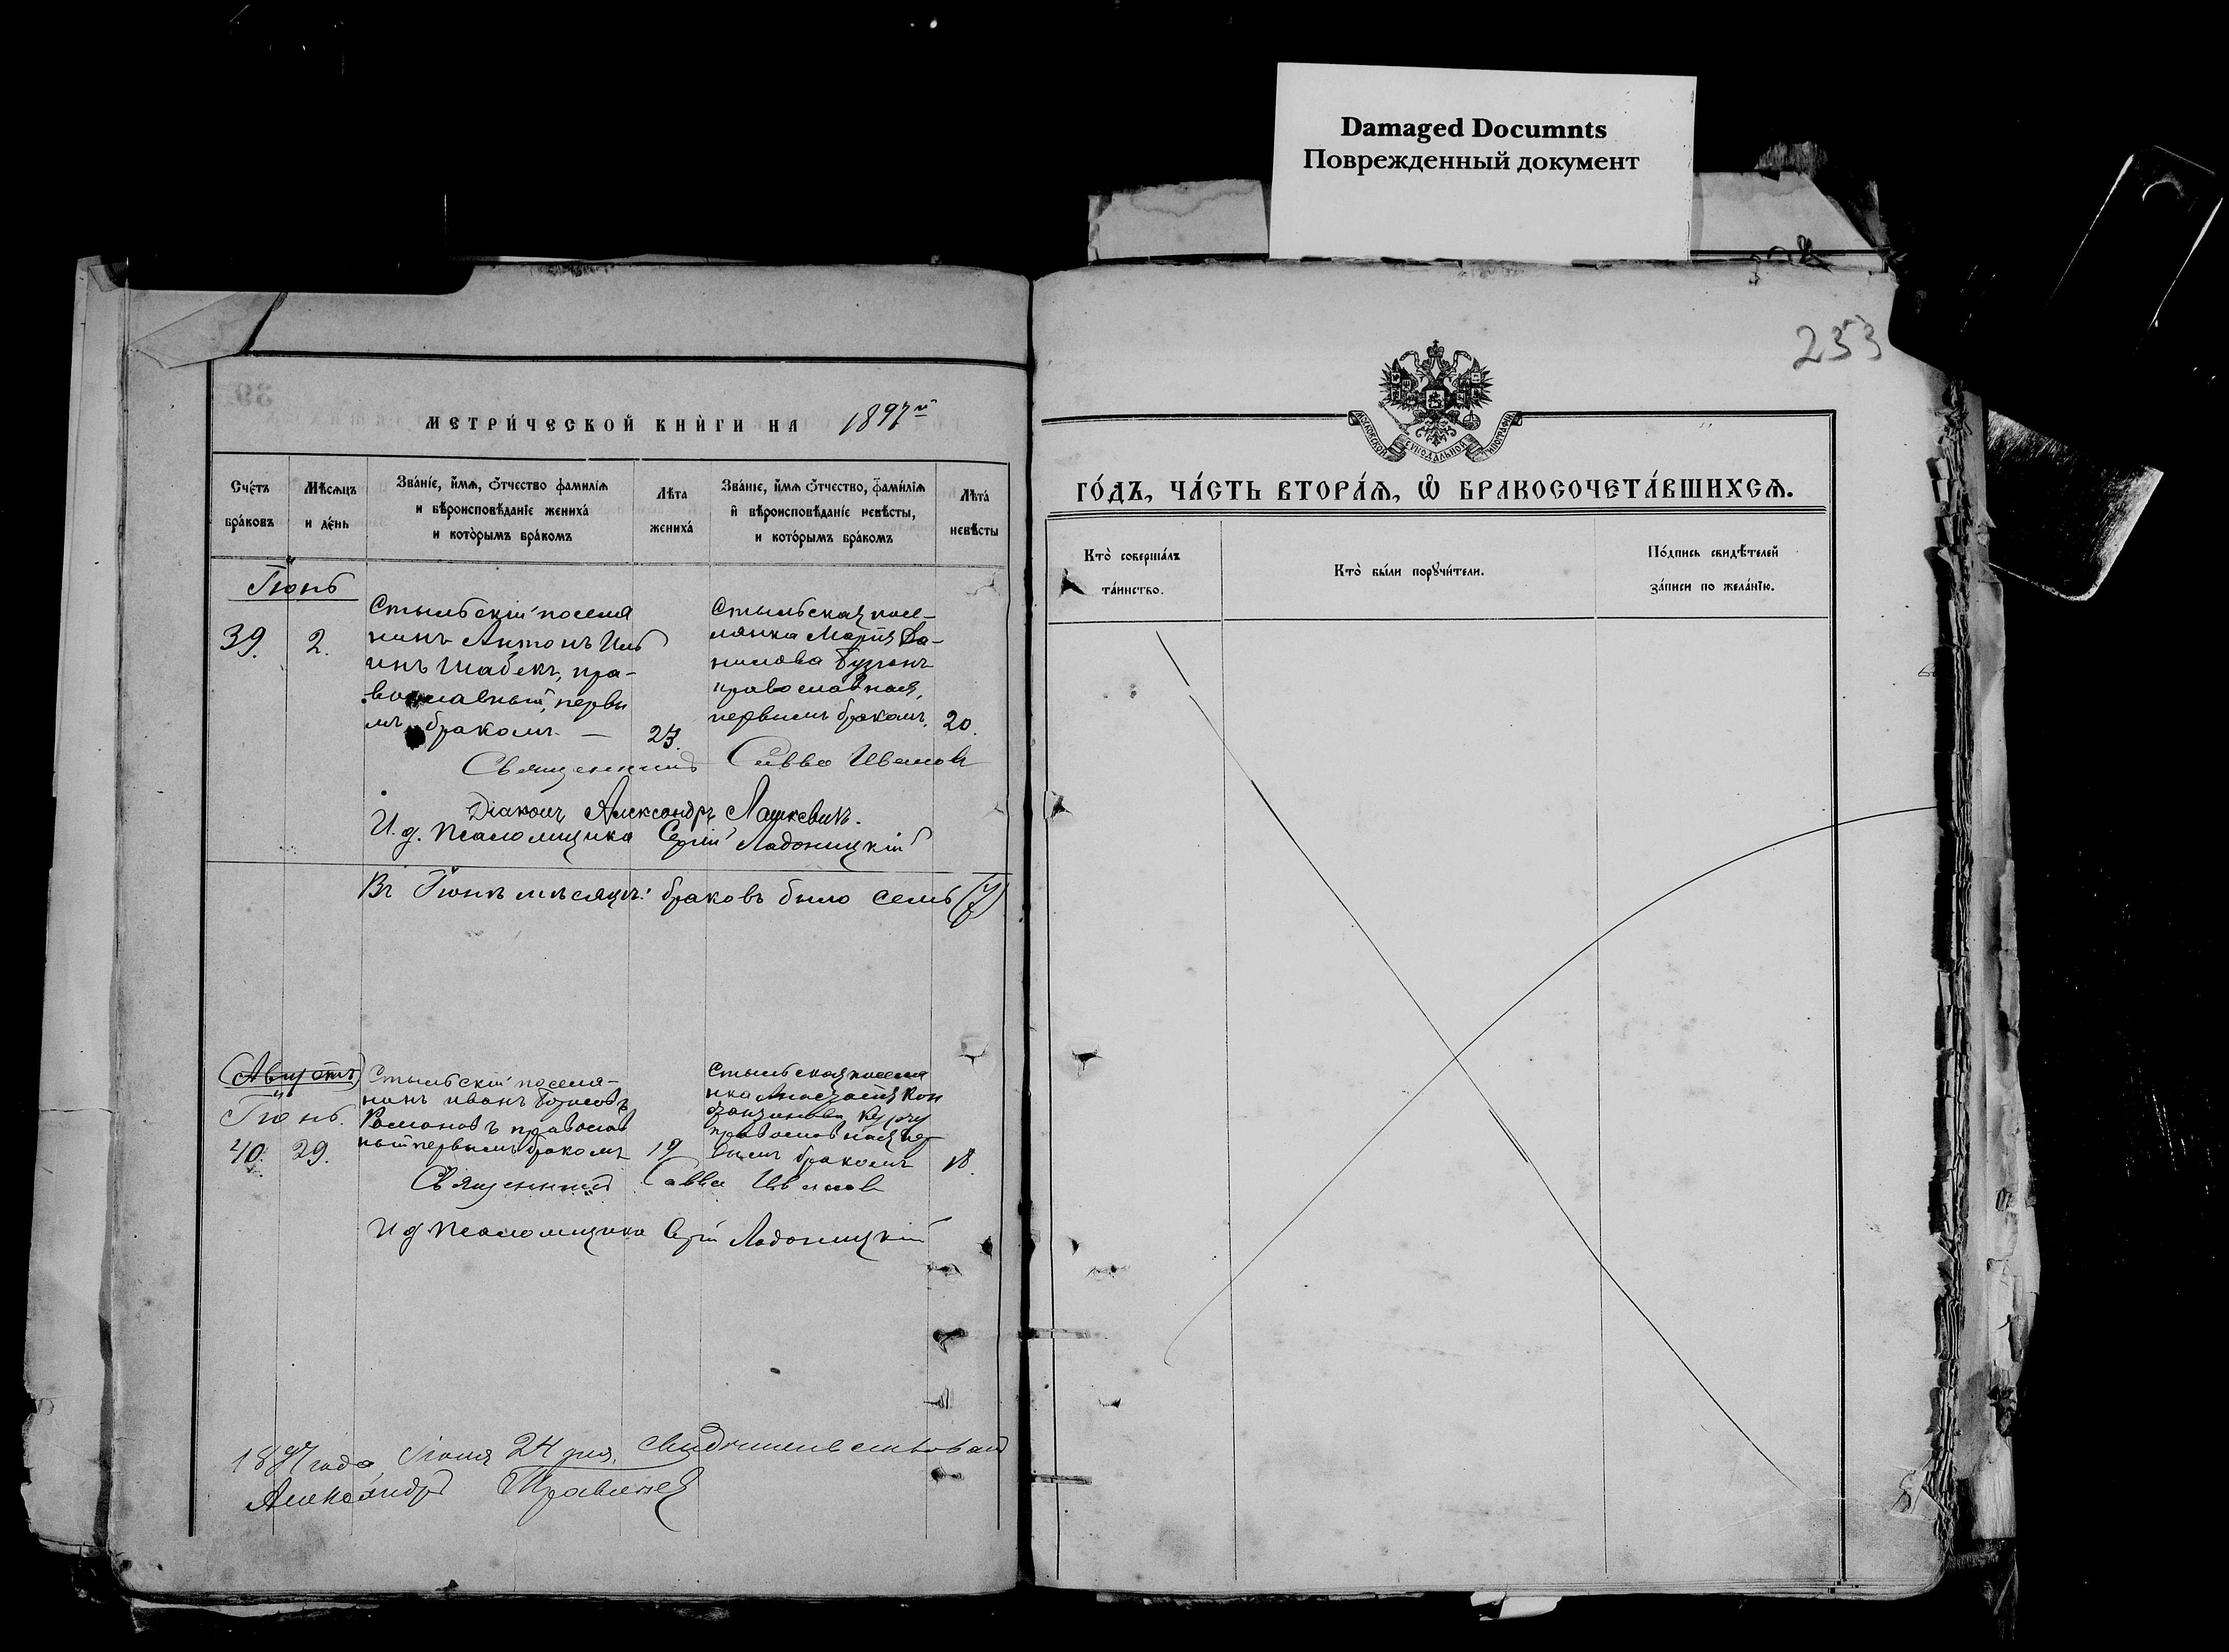 Damaged Documnts
Поврежденный документ
253
МЕТРИ́ЧЕСКОЙ КНИ́ГИ НА 1897й
ГО́ДЪ, ЧА́СТЬ ВТОРА́Ѧ, Ѽ БРАКОСОЧЕТА́ВШИХСѦ.
МОСКОВСКОЙ СѴНОДАЛЬНОЙ ТИПОГРАФІИ
Сче́тъ бра́ковъ
Мѣ́сѧцъ и де́нь
Зва́нїе, и́мѧ, ѻ́тчество фамилїѧ и вѣроисповѣ́данїе жениха́ и кото́рымъ бра́комъ
Лѣ́та жениха́
Зва́нїе, и́мѧ ѻ́тчество, фами́лїѧ и҆ вѣроисповѣ́данїе невѣ́сты, и кото́рымъ бра́комъ
Лѣ́та невѣ́сты
Кто̀ соверша́лъ та́инство.
Кто̀ бы́ли порꙋчи́тели.
По́дпись свидѣ́телей за́писи по жела́нїю.
Іюнь
39. 2.
Стыльскій поселя
нинъ Антонъ Иль
инъ Шабекъ, пра-
вославный, первы
мъ бракомъ —
23.
Стыльская посе-
лянка Марія Да-
нилова
православная,
первымъ бракомъ.
20.
Священникъ Савва Ивановъ
Діаконъ Александръ Лашкевичъ.
И. д. псаломщика Сергій Ладоницкій
Въ Іюнѣ мѣсяцѣ браковъ было семь (7)
(Августъ)
Іюнь.
40. 29.
Стыльскій поселя-
нинъ Иванъ Борисовъ
Романовъ православ
ный первымъ бракомъ
19
Стыльская поселя
нка Анастасія Кон
православная пер
вымъ бракомъ
18.
Священникъ Савва Ивановъ
И д псаломщика Сергій Ладоницкій
1897 года, Іюля 24 дня. Свидѣтельствовалъ
Александръ